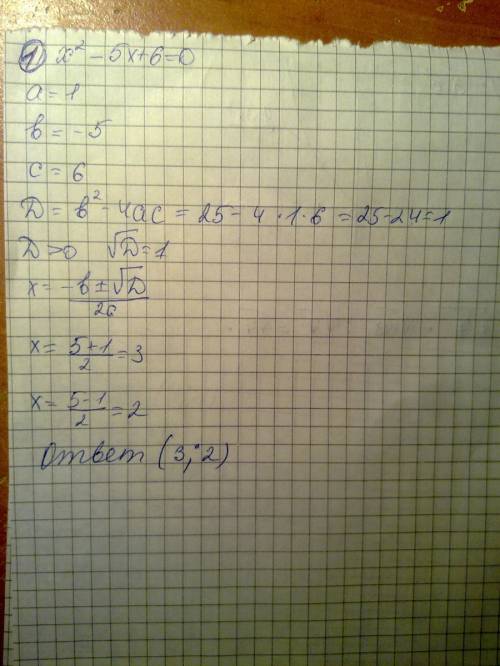 1) x² - 5x+6=0
a = 1
b = -5
c = 6
D = b² - 4ac = 25 - 4 · 1 · 6 = 25 - 24 = 1
D > 0 √D = 1
x = (-b ± √D)/2a
x = (5+1)/2 = 3
x = (5-1)/2 = 2
Ответ (3; 2)